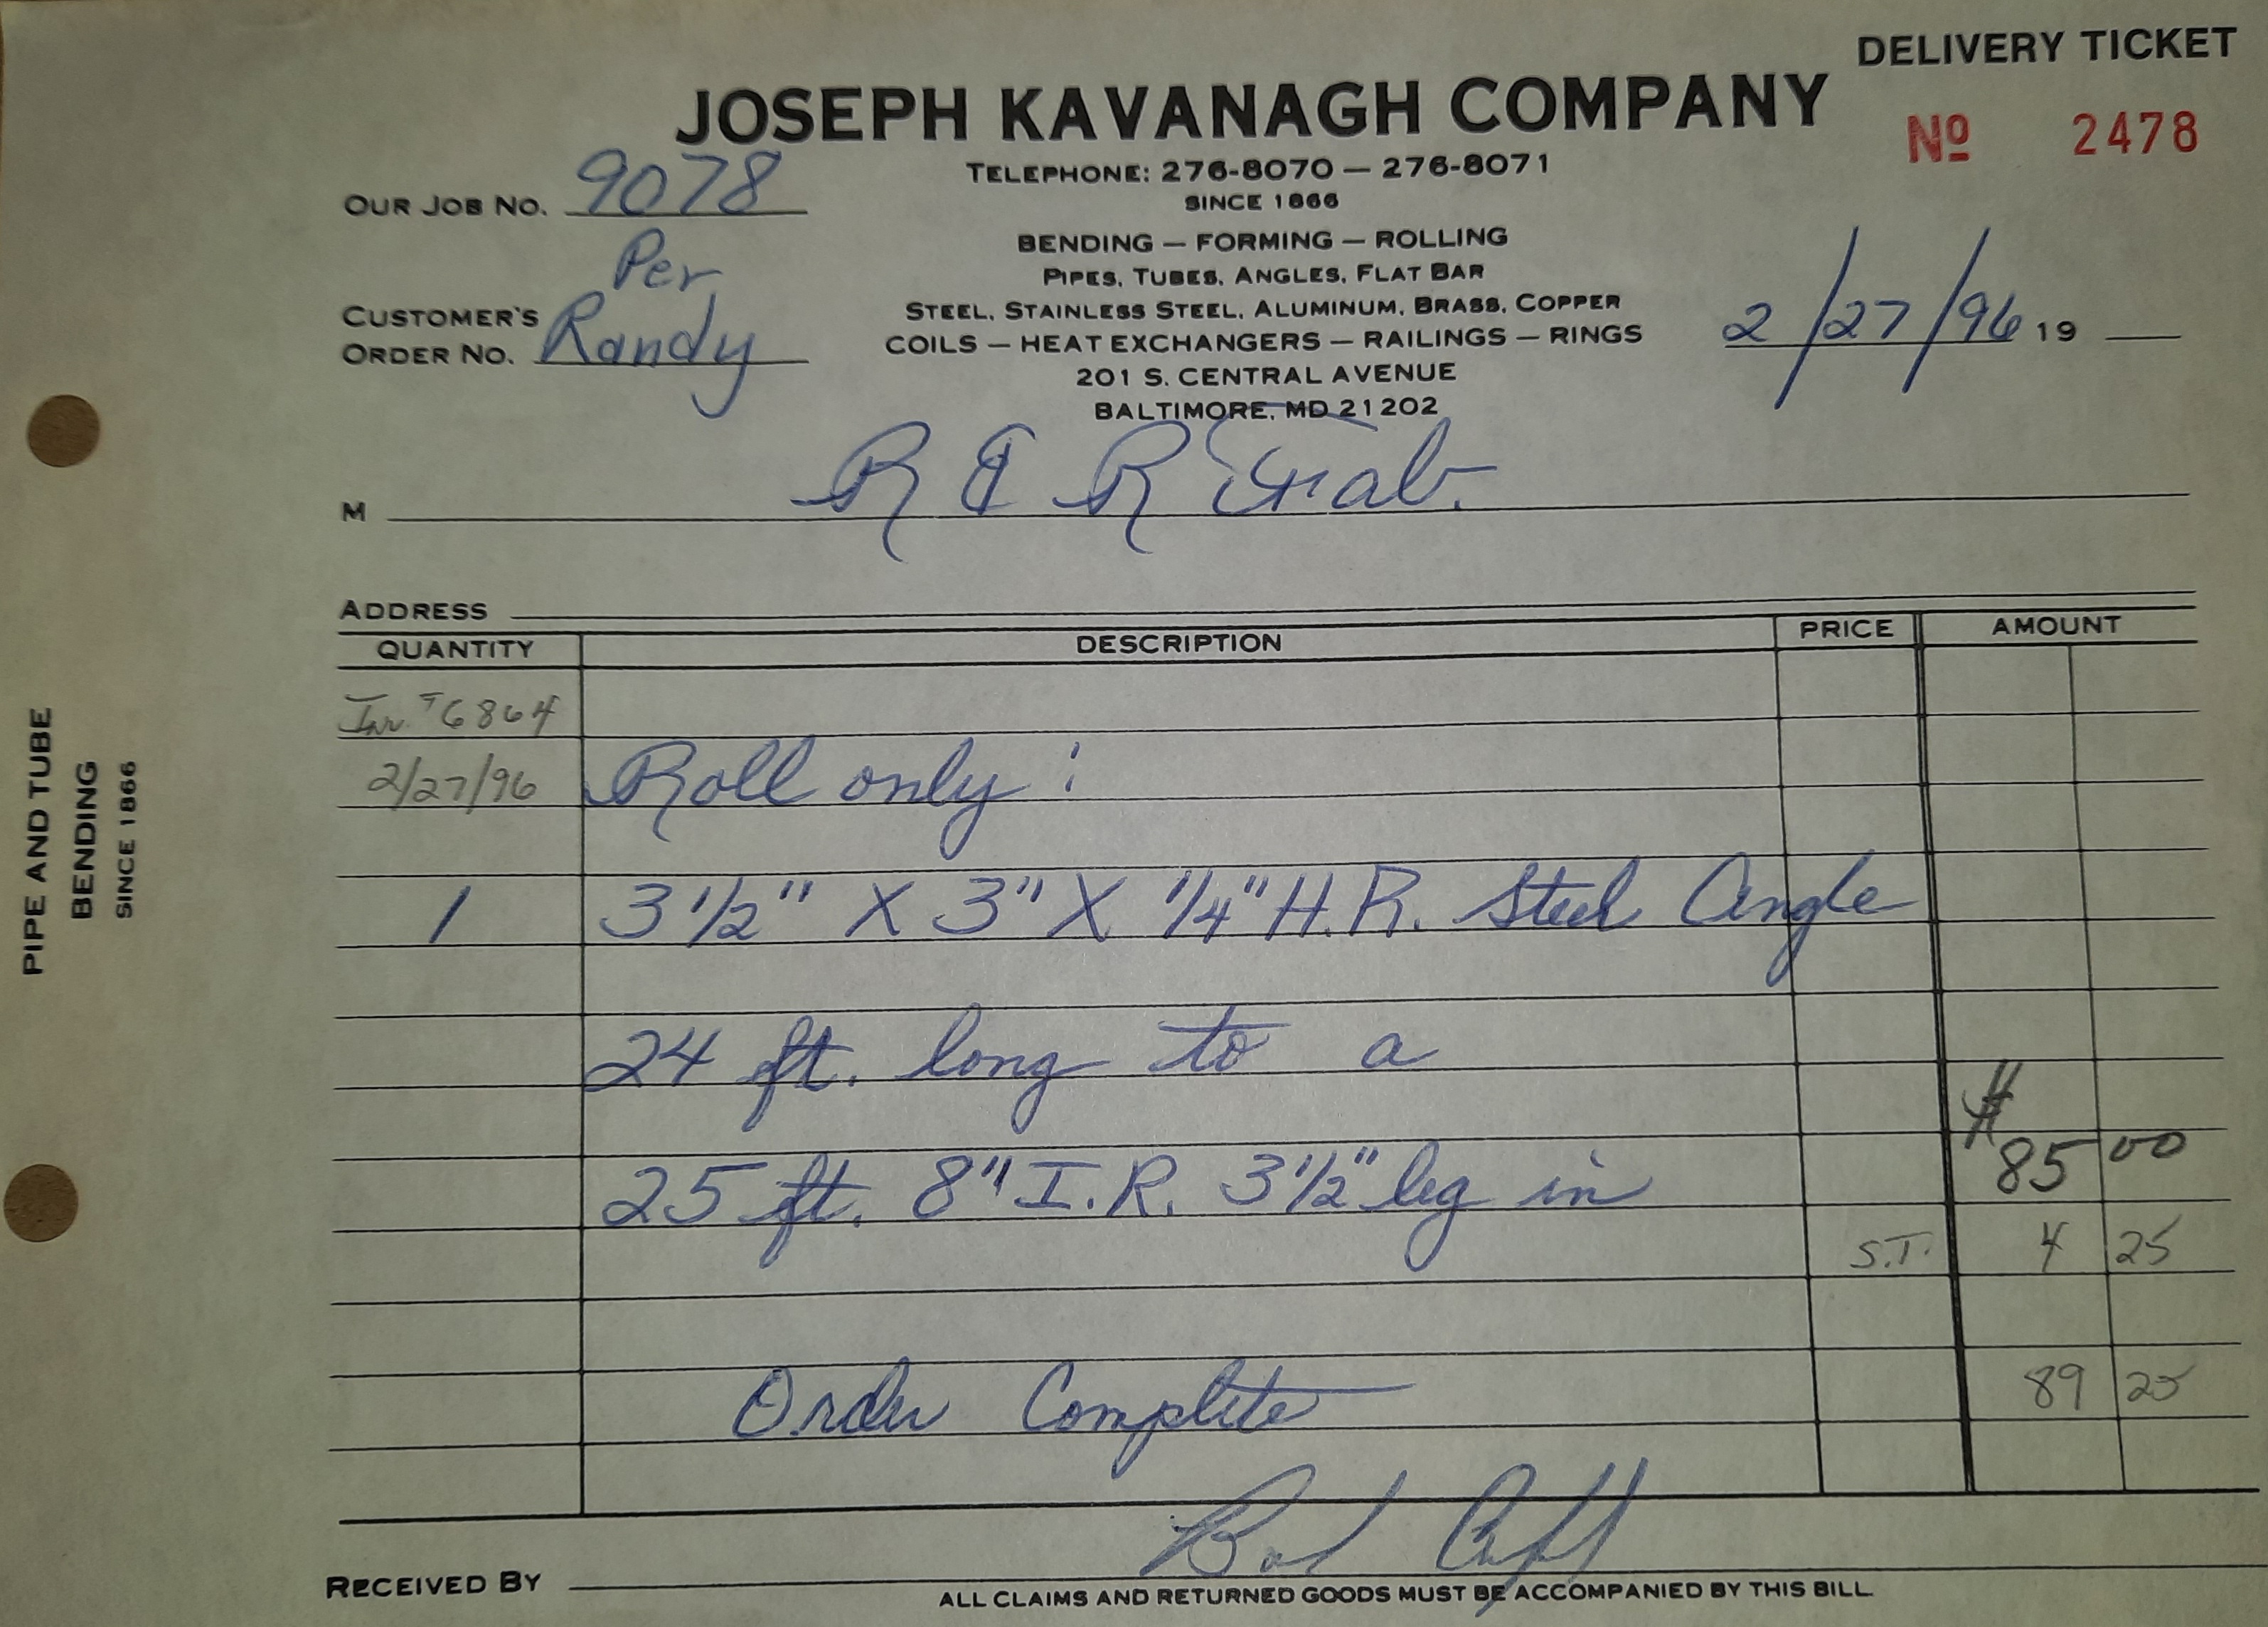 DELIVERY TICKET
JOSEPH KAVANAGH COMPANY
Nº 2478
TELEPHONE: 276-8070 — 276-8071
SINCE 1866
OUR JOB NO. 9078
BENDING — FORMING — ROLLING
PIPES, TUBES, ANGLES, FLAT BAR
STEEL, STAINLESS STEEL, ALUMINUM, BRASS, COPPER
COILS — HEAT EXCHANGERS — RAILINGS — RINGS
201 S. CENTRAL AVENUE
BALTIMORE, MD 21202
Per
CUSTOMER'S
ORDER NO. Randy
2/27/96 19
M R & R Fab.
ADDRESS
QUANTITY DESCRIPTION PRICE AMOUNT
Inv. # 6864
2/27/96 Roll only :
1 3 1/2" X 3" X 1/4" H.R. Steel Angle
24 ft. long to a
25 ft. 8" I.R. 3 1/2" leg in $ 85 00
S.T. 4 25
89 25
Order Complete
RECEIVED BY
ALL CLAIMS AND RETURNED GOODS MUST BE ACCOMPANIED BY THIS BILL
PIPE AND TUBE
BENDING
SINCE 1866